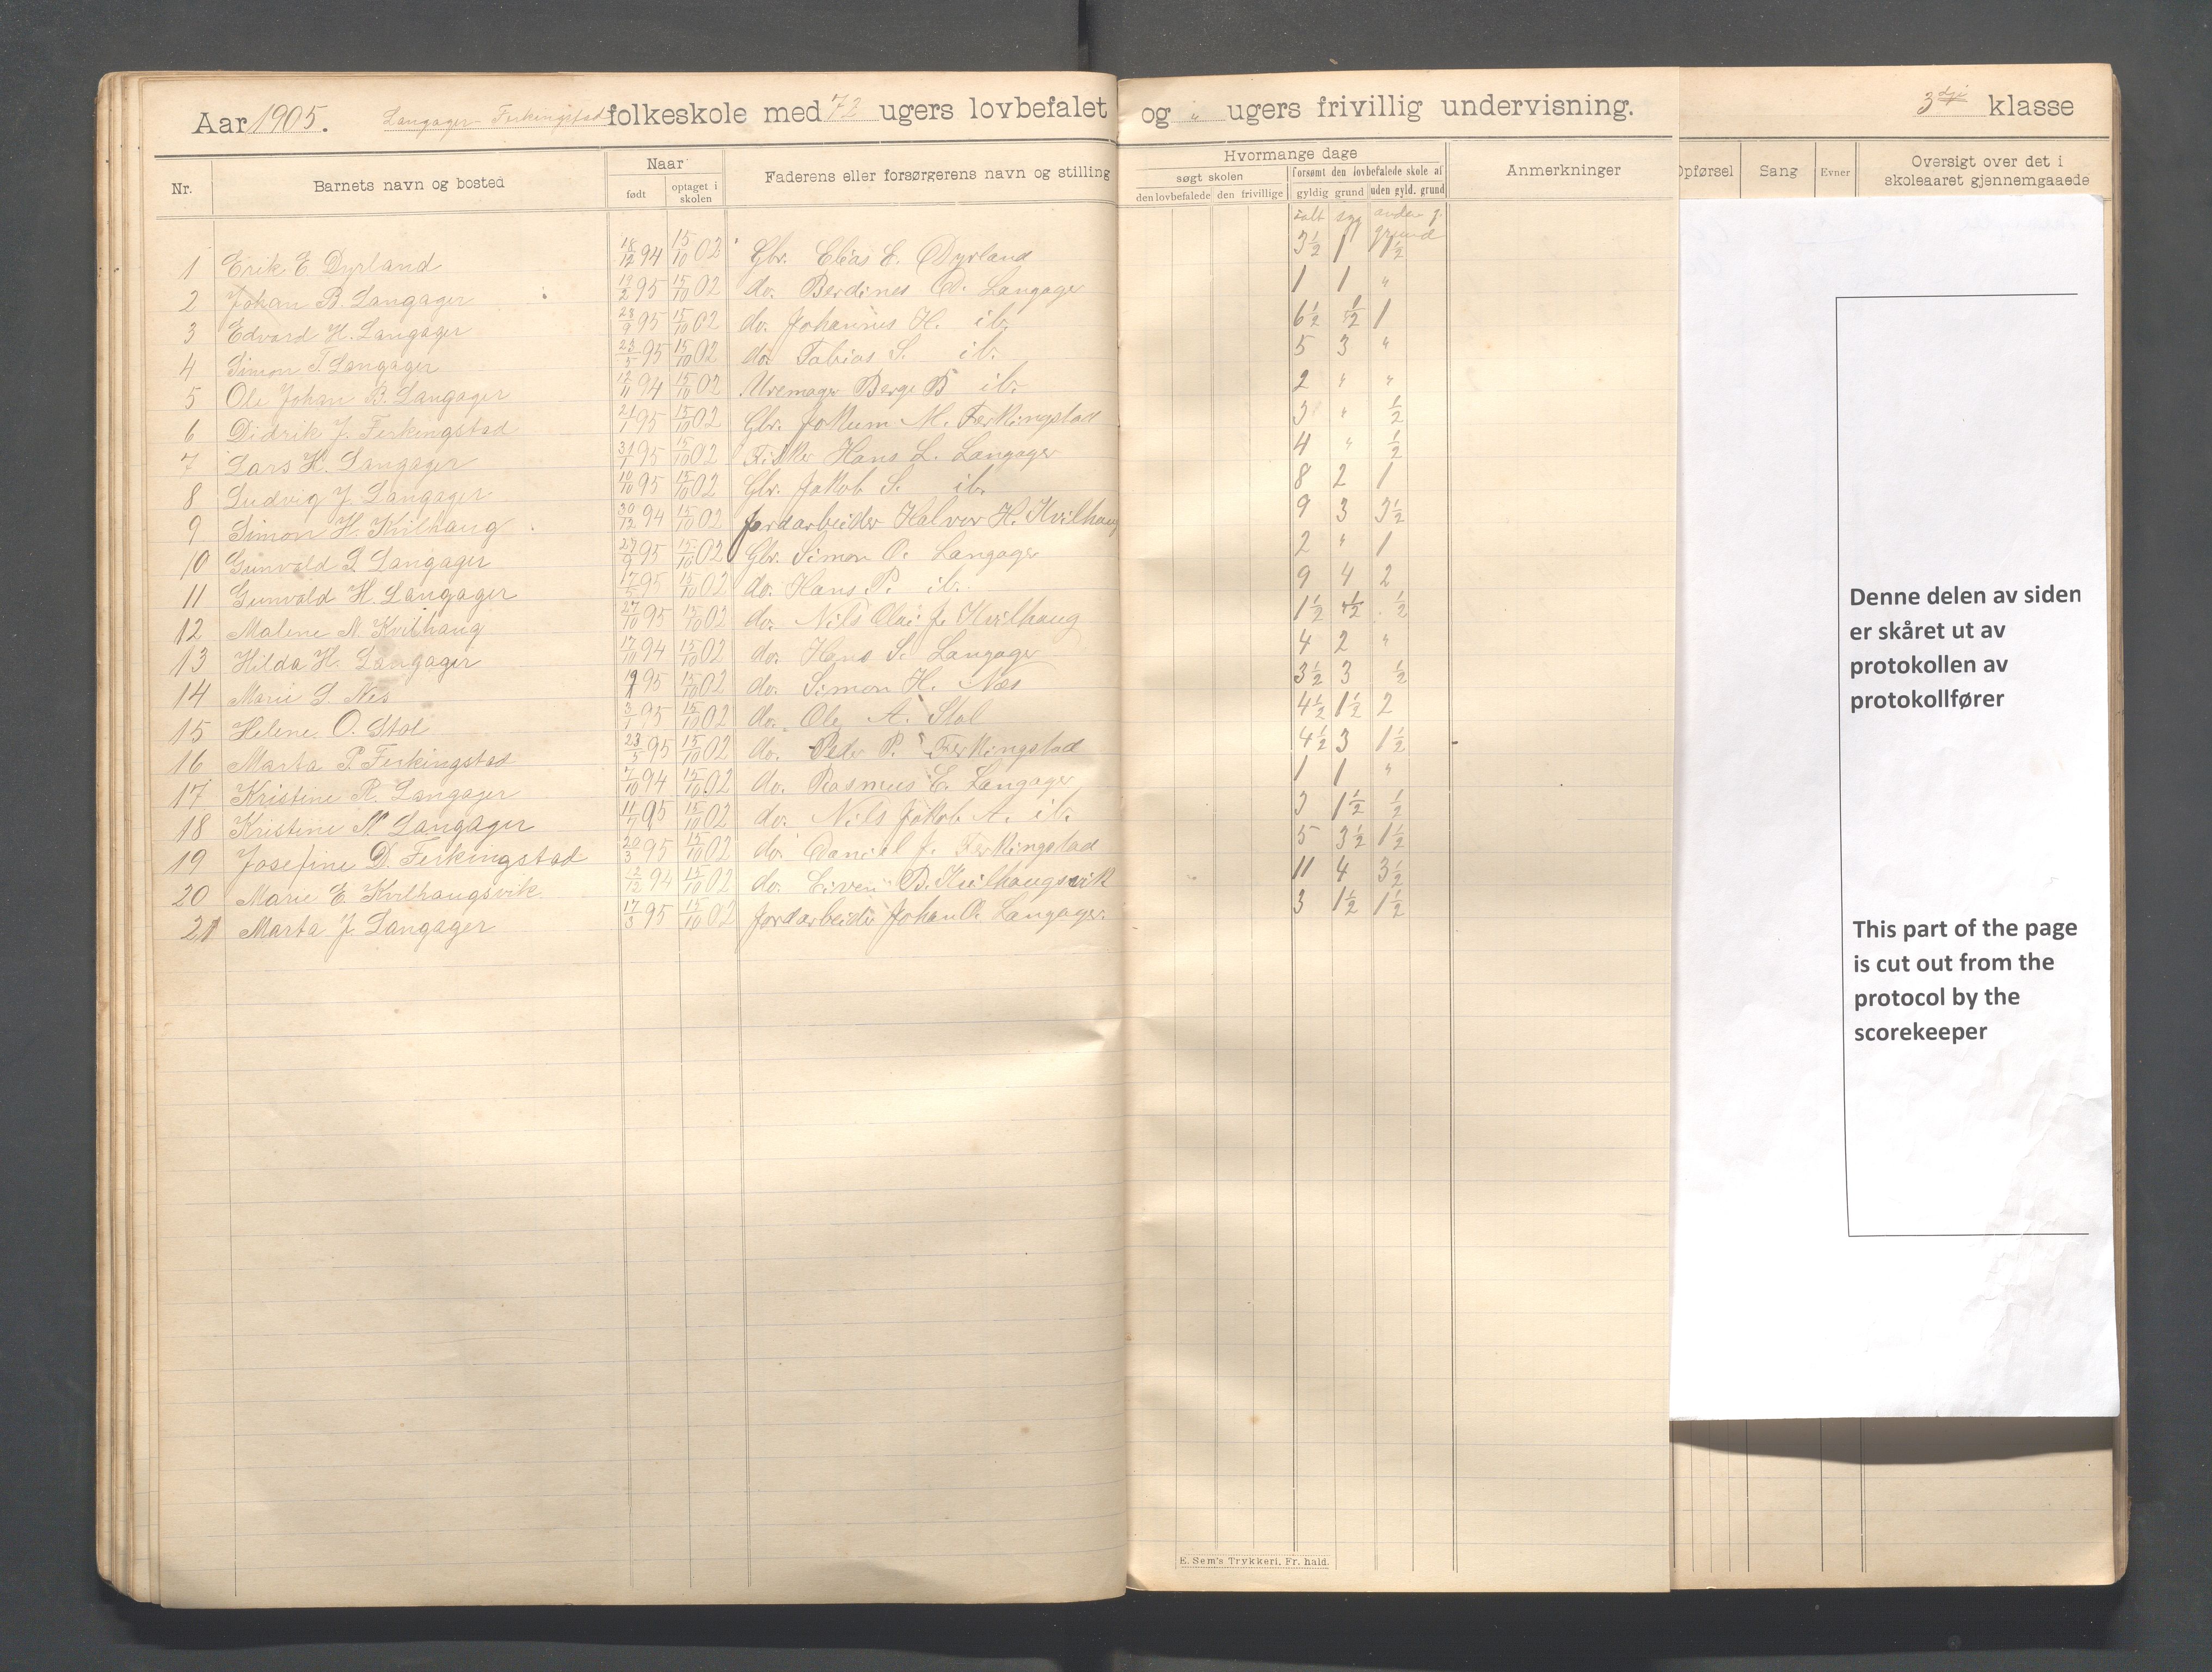 Aar 1905. Langager-Ferkingstad folkeskole med 72 ugers lovbefalet og " ugers frivillig undervisning. 3dje klasse
Nr. Barnets navn og bosted Naar født optaget i skolen Faderens eller forsørgerens navn og stilling Hvormange dage søgt skolen den lovbefalede den frivillige forsømt den lovbefalede skole af gyldig grund uden gyld. grund Anmerkninger Opførsel Sang Evner Oversigt over det i skoleaaret gjennemgaaede
ialt syg anden g. grund
1 Erik E. Dyrland 18/12 94 15/10 02 Gbr. Elias E. Dyrland 3 1/2 1 1 1/2
2 Johan B. Langager 19/2 95 15/10 02 do. Berdines O. Langager 1 1 "
3 Edvard H. Langager 28/9 95 15/10 02 do. Johannes H. ib. 6 1/2 1/2 1
4 Simon T. Langager 23/5 95 15/10 02 do. Tobias S. ib. 5 3 "
5 Ole Johan B. Langager 12/11 94 15/10 02 Uremager Berge B ib. 2 " "
6 Didrik J. Ferkingstad 21/1 95 15/10 02 Gbr. Jokkum M. Ferkingstad 3 " 1/2
7 Lars H. Langager 31/1 95 15/10 02 Fisker Hans L. Langager 4 " 1/2
8 Ludvig J. Langager 10/10 95 15/10 02 Gbr. Jakob S. ib. 8 2 1
9 Simon H. Kvilhaug 30/12 94 15/10 02 Jordarbeider Halvor H. Kvilhaug 9 3 3 1/2
10 Gunvald S. Langager 27/9 95 15/10 02 Gbr. Simon O. Langager 2 " 1
11 Gunvald H. Langager 17/5 95 15/10 02 do. Hans P. ib. 9 4 2
12 Malene N. Kvilhaug 27/10 95 15/10 02 do. Nils Olai J. Kvilhaug 1 1/2 1/2 1/2
13 Hilda H. Langager 17/10 94 15/10 02 do. Hans S. Langager 4 2 "
14 Marie S. Nes 95 15/10 02 do. Simon H. Næs 3 1/2 3 1/2
15 Helene O. Stol 3/1 95 15/10 02 do. Ole A. Stol 4 1/2 1 1/2 2
16 Marta P. Ferkingstad 23/5 95 15/10 02 do. Peder P. Ferkingstad 4 1/2 3 1 1/2
17 Kristine R. Langager 7/10 94 15/10 02 do. Rasmus E. Langager 1 1 "
18 Kristine N Langager 11/1 95 15/10 02 do. Nils Jakob A. ib. 3 1 1/2 1/2
19 Josefine D. Ferkingstad 20/3 95 15/10 02 do. Daniel J. Ferkingstad 5 3 1/2 1 1/2
20 Marie E. Kvilhaugsvik 12/12 94 15/10 02 do. Eiven B. Kvilhaugsvik 11 4 3 1/2
21 Marta J. Langager 17/3 95 15/10 02 Jordarbeider Johan O. Langager. 3 1 1/2 1 1/2
E. Sem's Trykkeri, Fr. hald.
Denne delen av siden
er skåret ut av
protokollen av
protokollfører
This part of the page
is cut out from the
protocol by the
scorekeeper